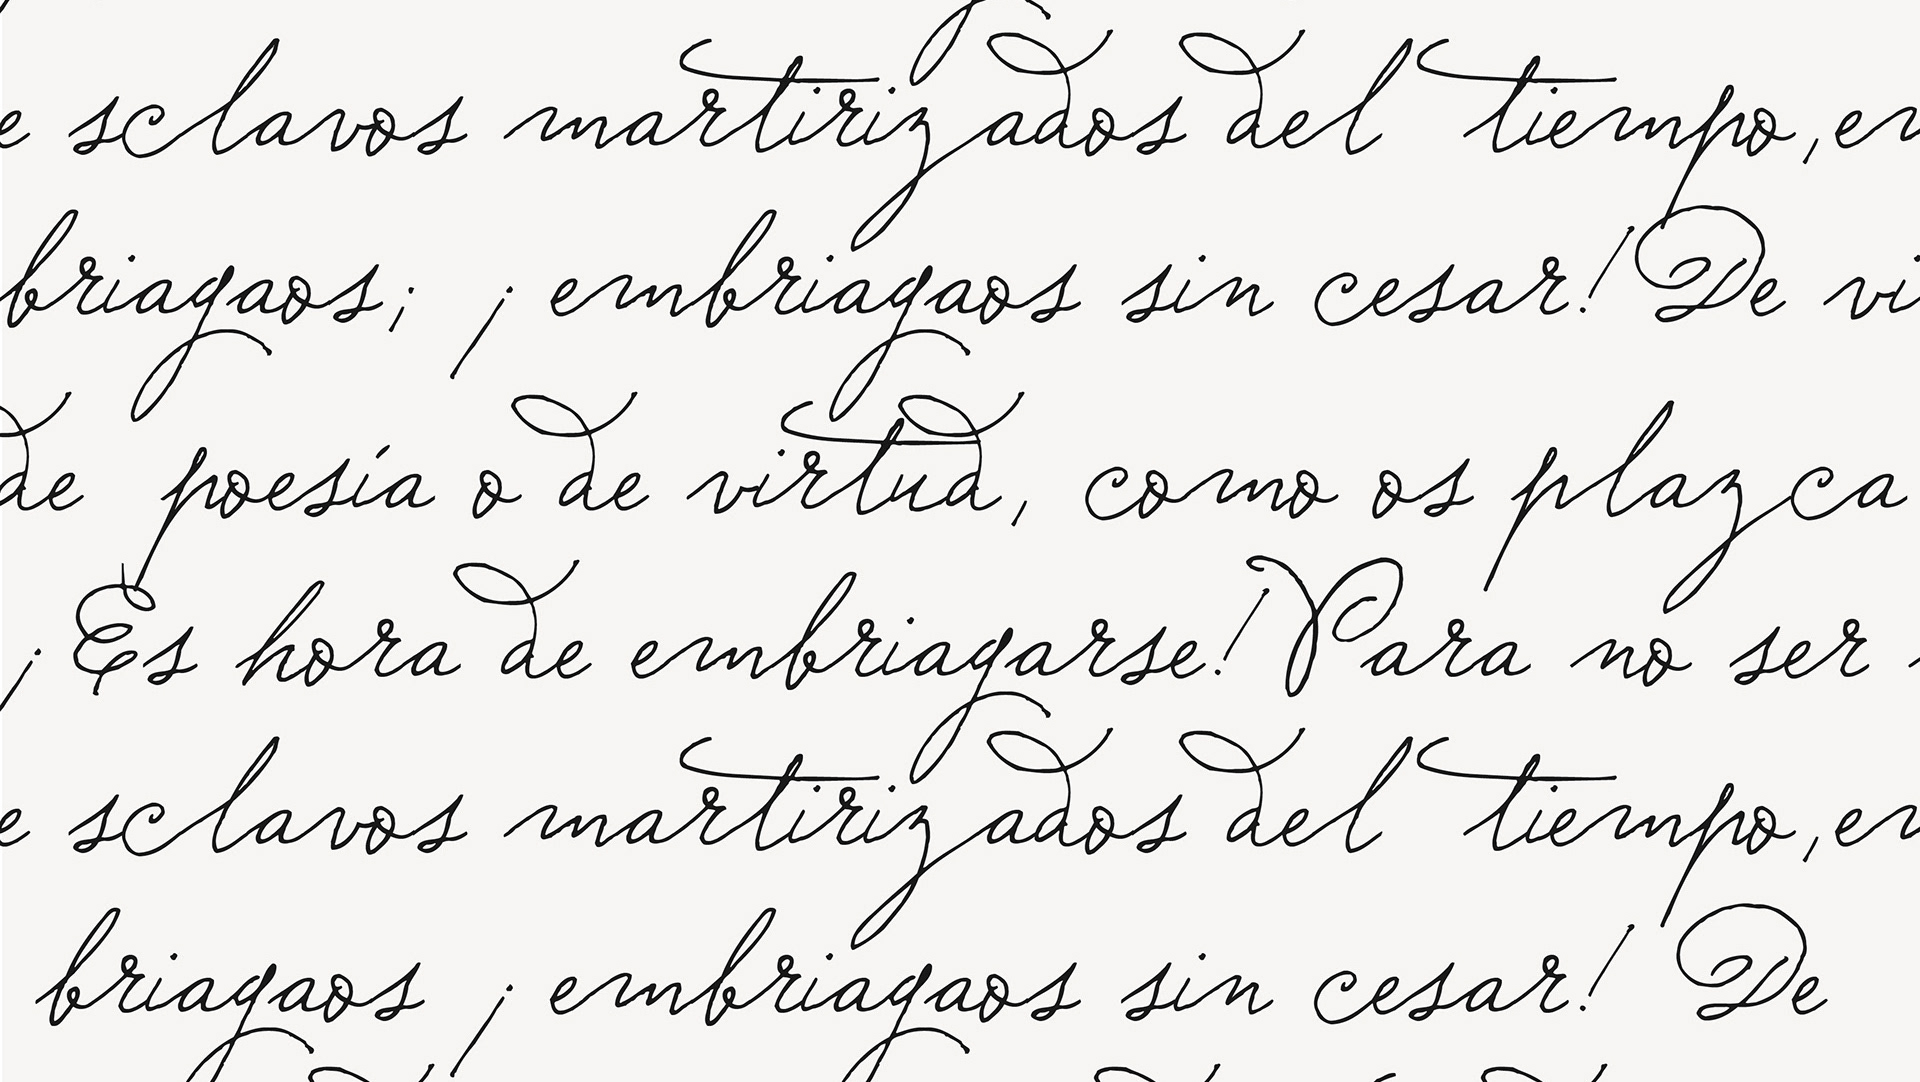 e sclavos martirizados del tiempo, em
briagaos; ¡embriagaos sin cesar! De vi
de poesía o de virtud, como os plazca
¡Es hora de embriagarse! Para no ser
e sclavos martirizados del tiempo, em
briagaos ¡embriagaos sin cesar! De